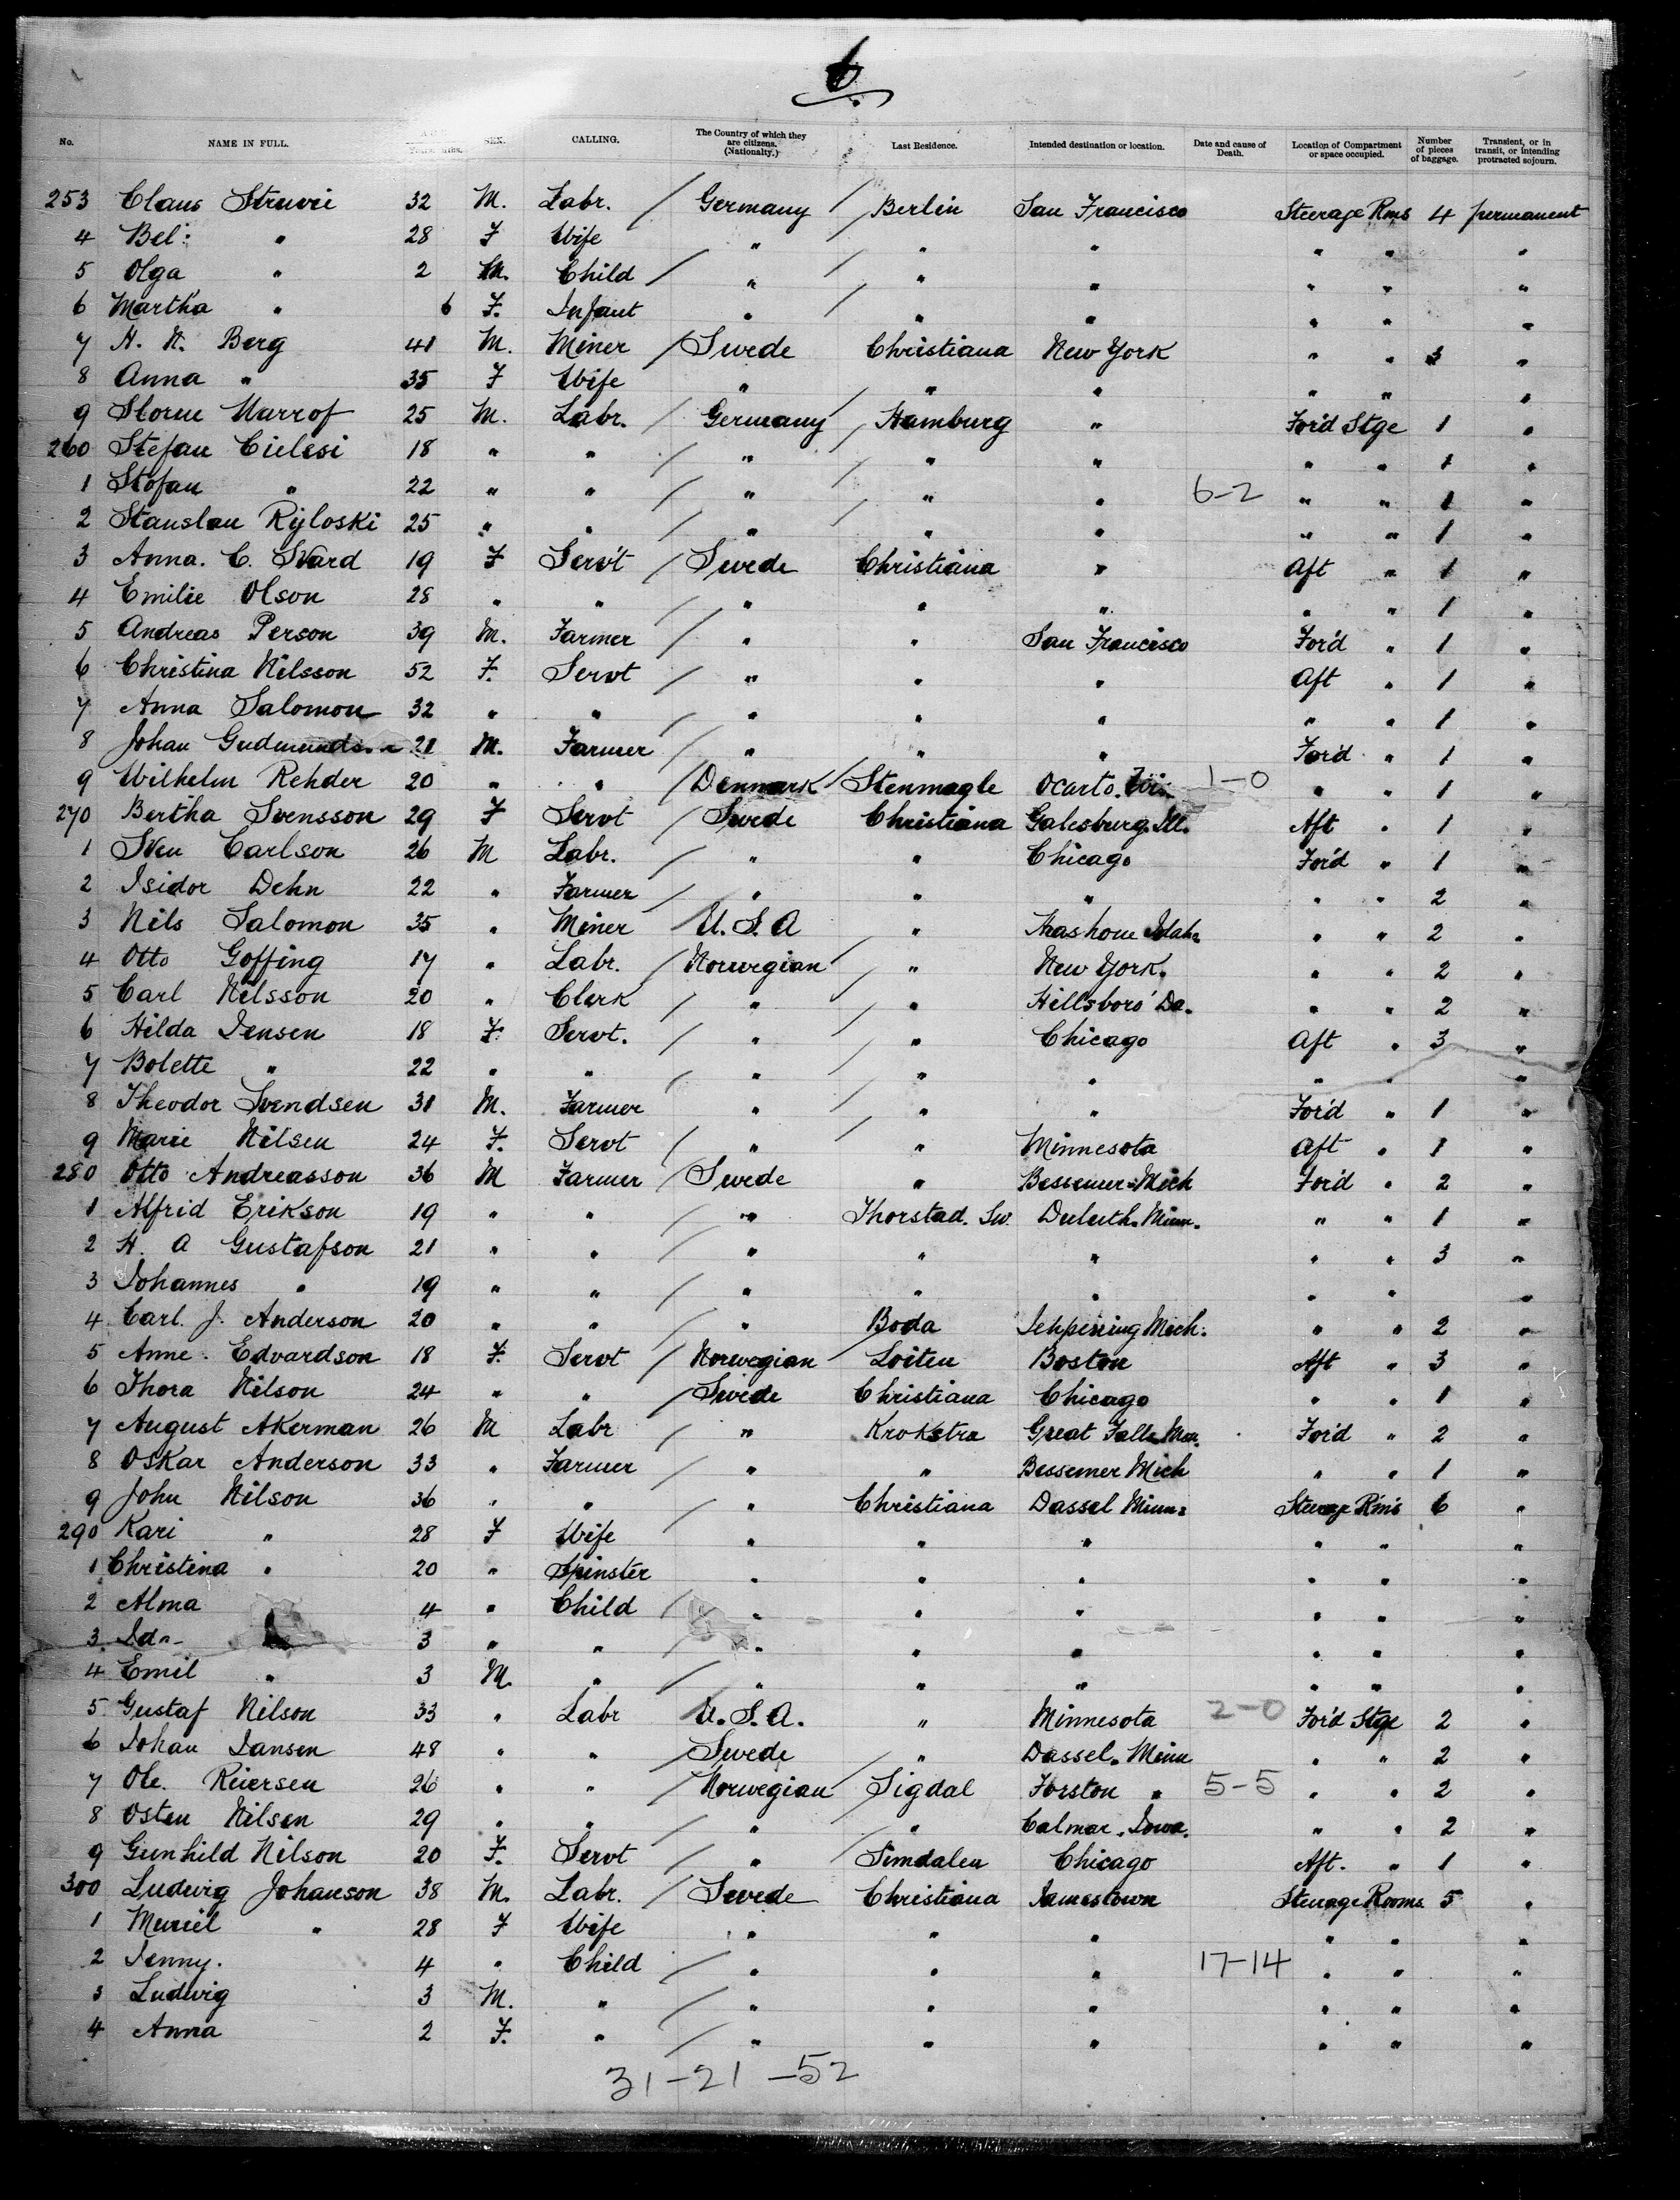 6.
No. NAME IN FULL. SEX. CALLING. The Country of which they are citizens. (Nationalty.) Last Residence. Intended destination or location. Date and cause of Death. Location of Compartment or space occupied. Number of pieces of baggage. Transient, or in transit, or intending protracted sojourn.
253 Claus Struvie 32 M. Labr. / Germany / Berlin San Francisco Steerage Rms 4 permanent
4 Bel: " 28 F Wife " " " " " "
5 Olga " 2 M. Child / " / " " " " "
6 Martha " 6 F. Infant " / " " " " "
7 H. N. Berg 41 M. Miner / Swede Christiana New York " " 3 "
8 Anna " 35 F Wife " " " " " "
9 Storm Marrof 25 M. Labr. / Germany / Hamburg " For'd Stge 1 "
260 Stefan Cielesi 18 " " / " / " " " " 1 "
1 Stofan " 22 " " / " / " " 6-2 " " 1 "
2 Stanslau Ryloski 25 " " / " / " " " " 1 "
3 Anna. C. Svard 19 F Servt / Swede Christiana " Aft " 1 "
4 Emilie Olson 28 " " / " " " " " 1 "
5 Andreas Person 39 M. Farmer / " " San Francisco For'd " 1 "
6 Christina Nilsson 52 F. Servt / " " " Aft " 1 "
7 Anna Salomon 32 " " / " " " " " 1 "
8 Johan 21 M. Farmer / " " " For'd " 1 "
9 Wilhelm Rehder 20 " " / Denmark / Stenmagle Ocarto. 1-0 " " 1 "
270 Bertha Svensson 29 F Servt / Swede Christiana Galesburg. Ill. Aft " 1 "
1 Sven Carlson 26 M Labr. / " " Chicago For'd " 1 "
2 Isidor Dehn 22 " Farmer / " " " " " 2 "
3 Nils Salomon 35 " Miner U.S.A " Idaho " " 2 "
4 Otto Goffing 17 " Labr. / Norwegian / " New York. " " 2 "
5 Carl Nilsson 20 " Clerk / " / " Hillsboro' Da. " " 2 "
6 Hilda Jensen 18 F. Servt. / " / " Chicago Aft " 3 "
7 Bolette " 22 " " / " / " " " " "
8 Theodor Svendsen 31 M. Farmer " / " " For'd " 1 "
9 Marie Nilsen 24 F. Servt / " / " Minnesota Aft " 1 "
280 Otto Andreasson 36 M Farmer / Swede " Bessemer Mich For'd " 2 "
1 Alfrid Erikson 19 " " / " Thorstad. Sw. Duluth. Minn. " " 1 "
2 H. A Gustafson 21 " " / " " " " " 3 "
3 Johannes " 19 " " / " " " " " "
4 Carl. J. Anderson 20 " " / " Boda Mich. " " 2 "
5 Anne. Edvardson 18 F. Servt / Norwegian / Loiten Boston Aft " 3 "
6 Thora Nilson 24 " " / Swede Christiana Chicago " " 1 "
7 August Akerman 26 M Labr / " Krokstra Great Falls Mon. For'd " 2 "
8 Oskar Anderson 33 " Farmer / " " Bessemer Mich " " 1 "
9 John Nilson 36 " " / " Christiana Dassel Minn: Steerage Rm's 6 "
290 Kari " 28 F Wife " " " " " "
1 Christina " 20 " Spinster " " " " " "
2 Alma 4 " Child / " " " " " "
3. Ida 3 " " / " " " " " "
4 Emil " 3 M. " / " " " " " "
5 Gustaf Nilson 33 " Labr U.S.A. " Minnesota 2-0 For'd Stge 2 "
6 Johan Jansen 48 " " / Swede / " Dassel. Minn " " 2 "
7 Ole. Reiersen 26 " " / Norwegian / Sigdal Forston " 5-5 " " 2 "
8 Osten Nilsen 29 " " / " / " Calmar. Iowa. " " 2 "
9 Gunhild Nilson 20 F. Servt / " Simdalen Chicago Aft. " 1 "
300 Ludwig Johanson 38 M. Labr. / Swede Christiana Jamestown Steerage Rooms 5 "
1 " 28 F Wife " " " " " "
2 Jenny. 4 " Child / " " " 17-14 " " "
3 Ludwig 3 M. " / " " " " " "
4 Anna 2 F. " / " " " " " "
31-21-52